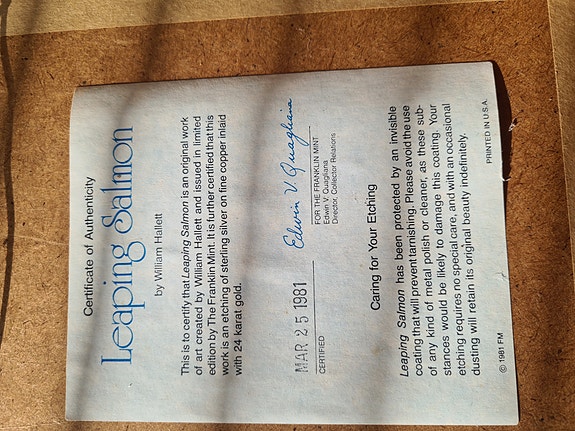 Certificate of Authenticity
Leaping Salmon
by William Hallett
This is to certify that Leaping Salmon is an original work
of art created by William Hallett and issued in limited
edition by The Franklin Mint. It is further certified that this
work is an etching of sterling silver on fine copper inlaid
with 24 karat gold.
MAR 25 1981
CERTIFIED
Edwin V. Quagliana
FOR THE FRANKLIN MINT
Edwin V. Quagliana
Director, Collector Relations
Caring for Your Etching
Leaping Salmon has been protected by an invisible
coating that will prevent tarnishing. Please avoid the use
of any kind of metal polish or cleaner, as these sub-
stances would be likely to damage this coating. Your
etching requires no special care, and with an occasional
dusting will retain its original beauty indefinitely.
© 1981 FM
PRINTED IN U.S.A.